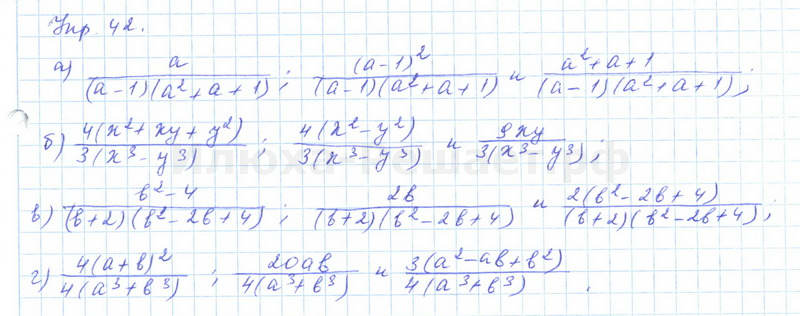 Упр. 42.
а) a/((a-1)(a²+a+1)); (a-1)²/((a-1)(a²+a+1)) и (a²+a+1)/((a-1)(a²+a+1));
б) 4(x²+xy+y²)/3(x³-y³); 4(x²-y²)/3(x³-y³) и 9xy/3(x³-y³);
в) (b²-4)/((b+2)(b²-2b+4)); 2b/((b+2)(b²-2b+4)) и 2(b²-2b+4)/((b+2)(b²-2b+4));
г) 4(a+b)²/4(a³+b³); 20ab/4(a³+b³) и 3(a²-ab+b²)/4(a³+b³).